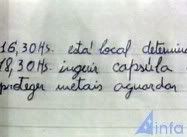 16,30Hs. está local determin
18,30Hs. ingerir capsula
proteger metais aguardar
info